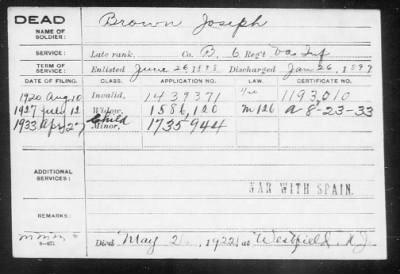 DEAD
NAME OF SOLDIER:
Brown Joseph
SERVICE:
Late rank, Co. B, 6 Reg't Va Inf
TERM OF SERVICE:
Enlisted June 28 1898 Discharged Jan 26, 1899
DATE OF FILING. CLASS. APPLICATION NO. LAW. CERTIFICATE NO.
1920 Aug 10 Invalid, 1439371 1193,010
1927 July 12 Widow, 1586,126 M 126 A 8-23-33
1933 Apr 27 Child Minor, 1735944
ADDITIONAL SERVICES:
WAR WITH SPAIN.
REMARKS:
Died May 2, 1922, at Westfield, N.J.